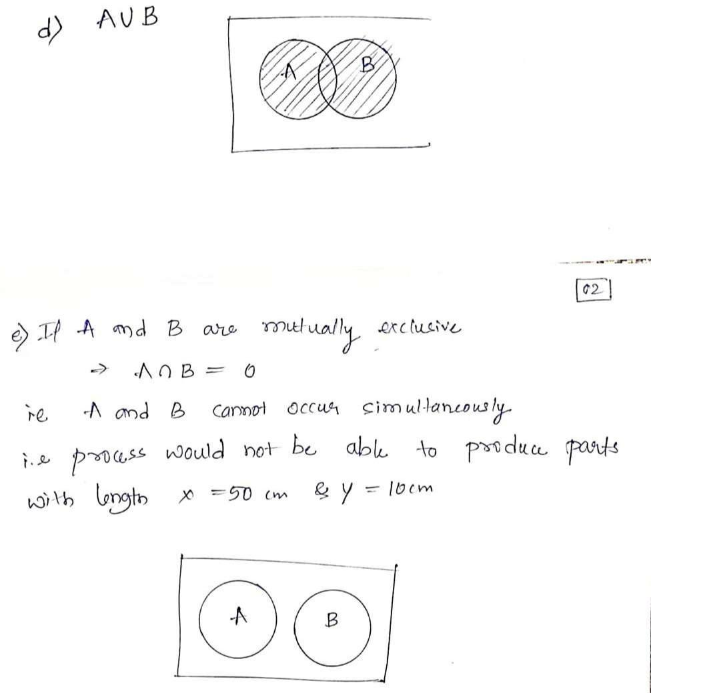 d) A∪B
A B
02
e) If A and B are mutually exclusive
→ A∩B = 0
ie A and B cannot occur simultaneously
i.e process would not be able to produce parts
with length x = 50 cm & y = 10cm
A B